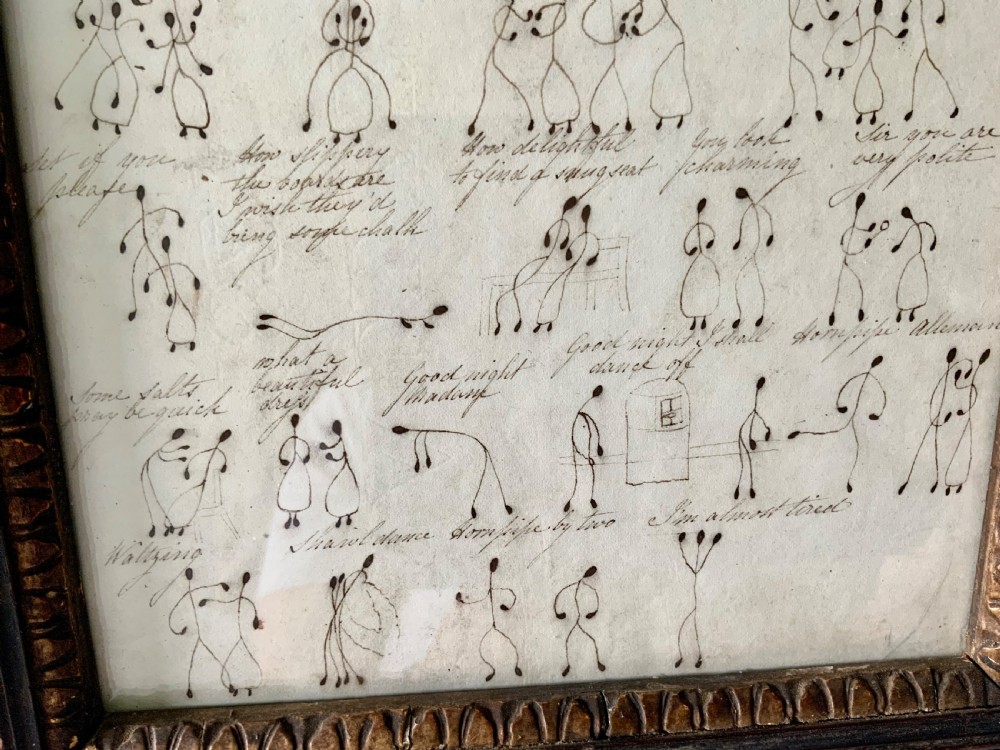 Set if you
please
How slippery
the boards are
I wish they'd
bring some chalk
How delightful
to find a snug seat
You look
charming
Sir you are
very polite
Some salts
pray be quick
What a
beautiful
dress
Good night
Madam
Good night I shall
dance off
Hornpipe Alleman
Waltzing
Shawl dance
Hornpipe by two
I'm almost tired